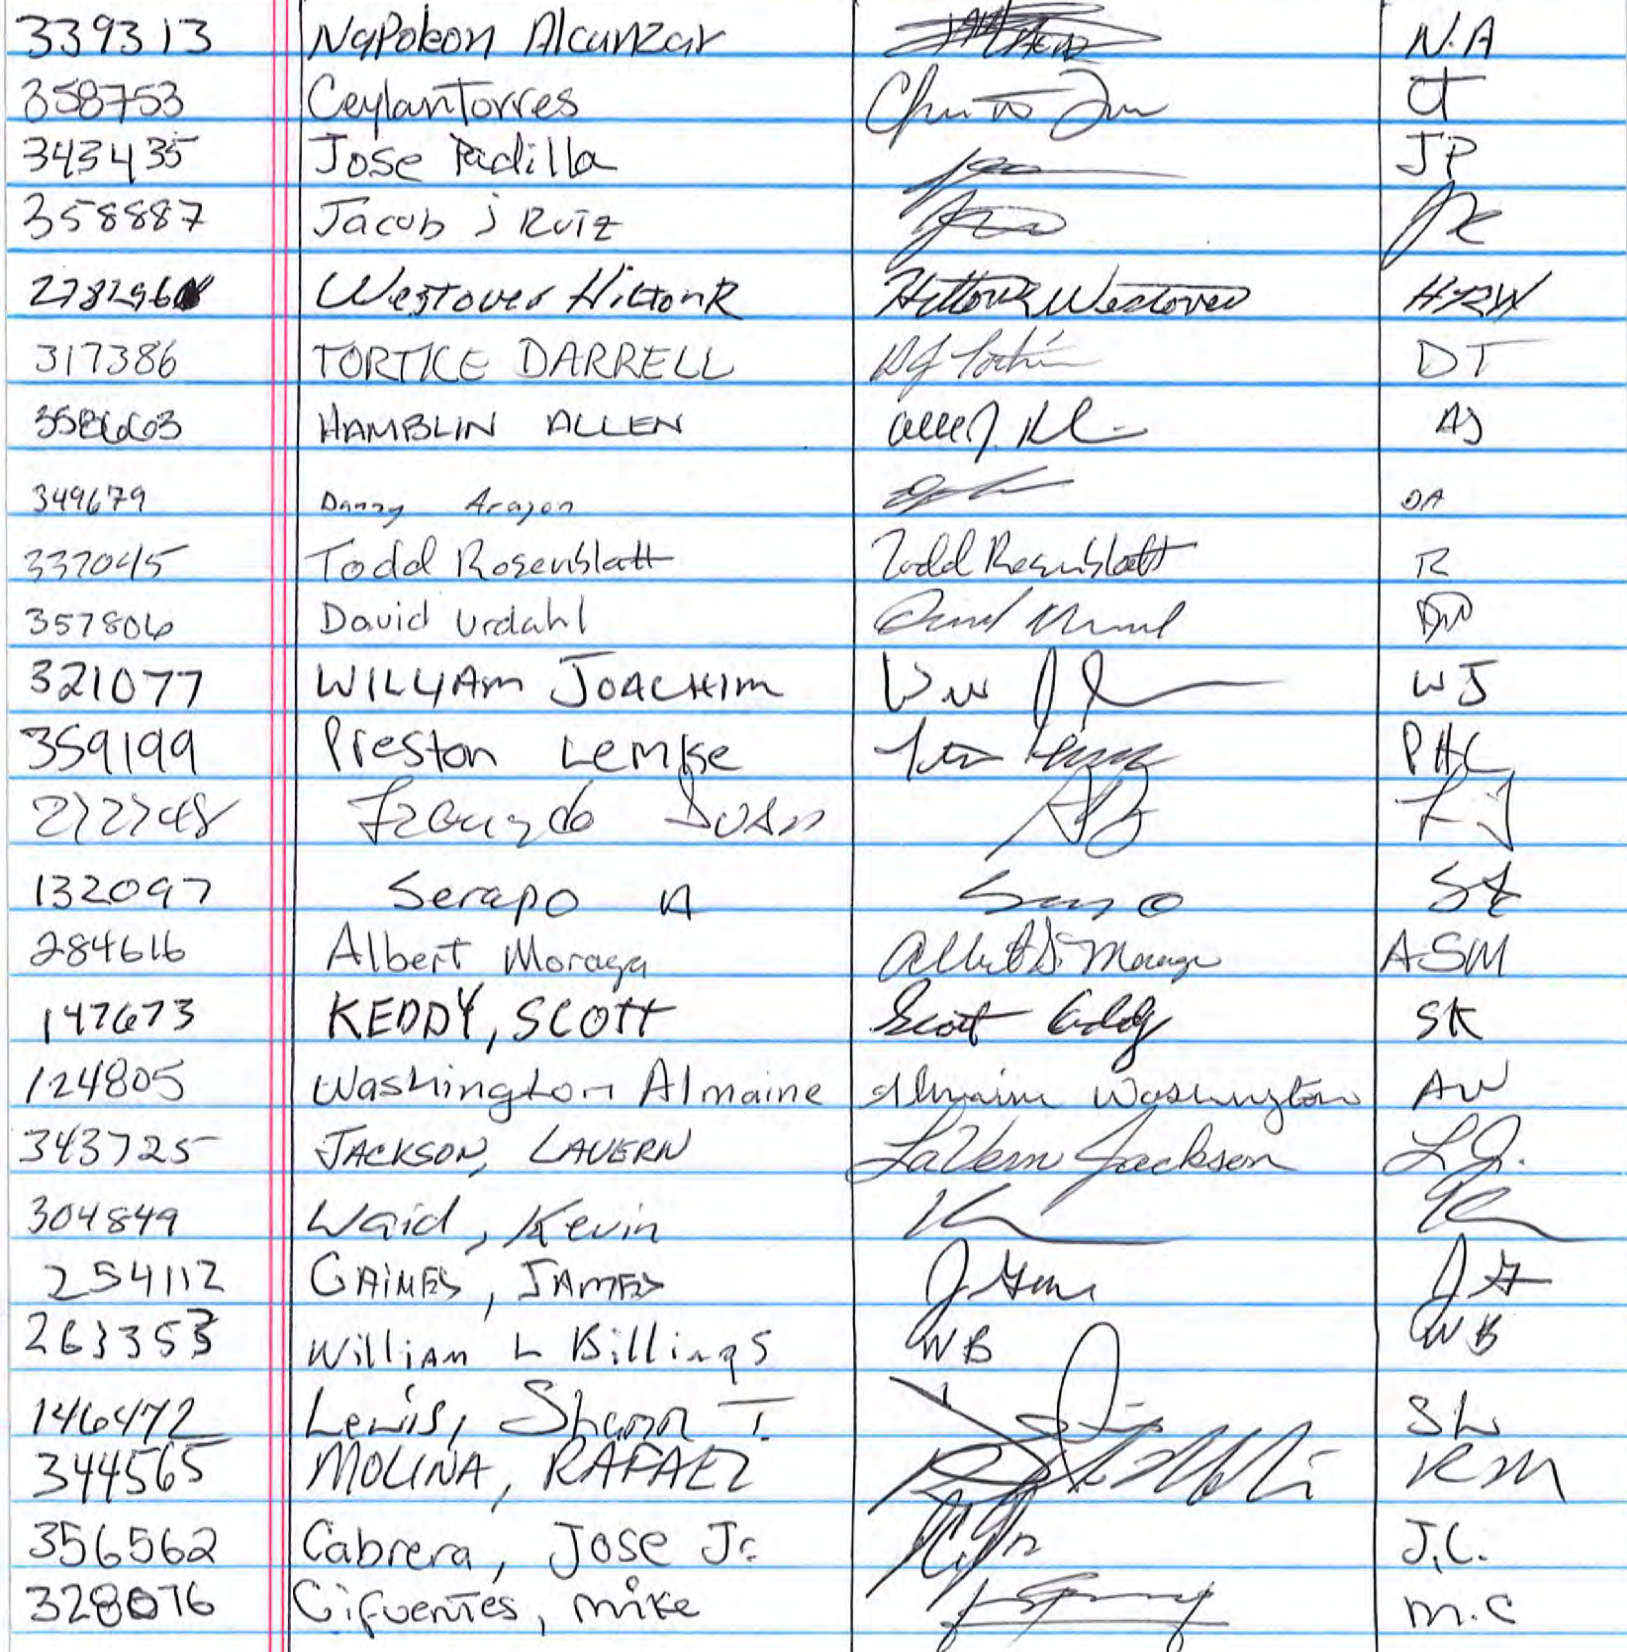 339313 Napoleon Alcanzar N.A
358753 Ceylan Torres CT
343435 Jose Padilla JP
358887 Jacob j Ruiz JR
Westover Hilton R Hilton R Westover HRW
317386 TORTICE DARRELL DT
HAMBLIN ALLEN AJ
349679 Danny Aragon DA
337045 Todd Rosenblatt Todd Rosenblatt R
357806 David Urdahl
321077 WILLIAM JOACHIM WJ
359199 Preston Lemke PHL
Juan FJ
132097 Serapo A
284616 Albert Moraga Albert S. Moraga ASM
147673 KEDDY, SCOTT Scott Keddy SK
124805 Washington Almaine Almaine Washington AW
343725 JACKSON, LAVERN LaVern Jackson L.J.
304849 Waid, Kevin
254112 GAINES, JAMES JG
263353 William L Billings WB WB
146472 Lewis, Shann I. SL
344565 MOLINA, RAFAEL RM
356562 Cabrera, Jose Jr. J.C.
328076 Cifuentes, mike m.c